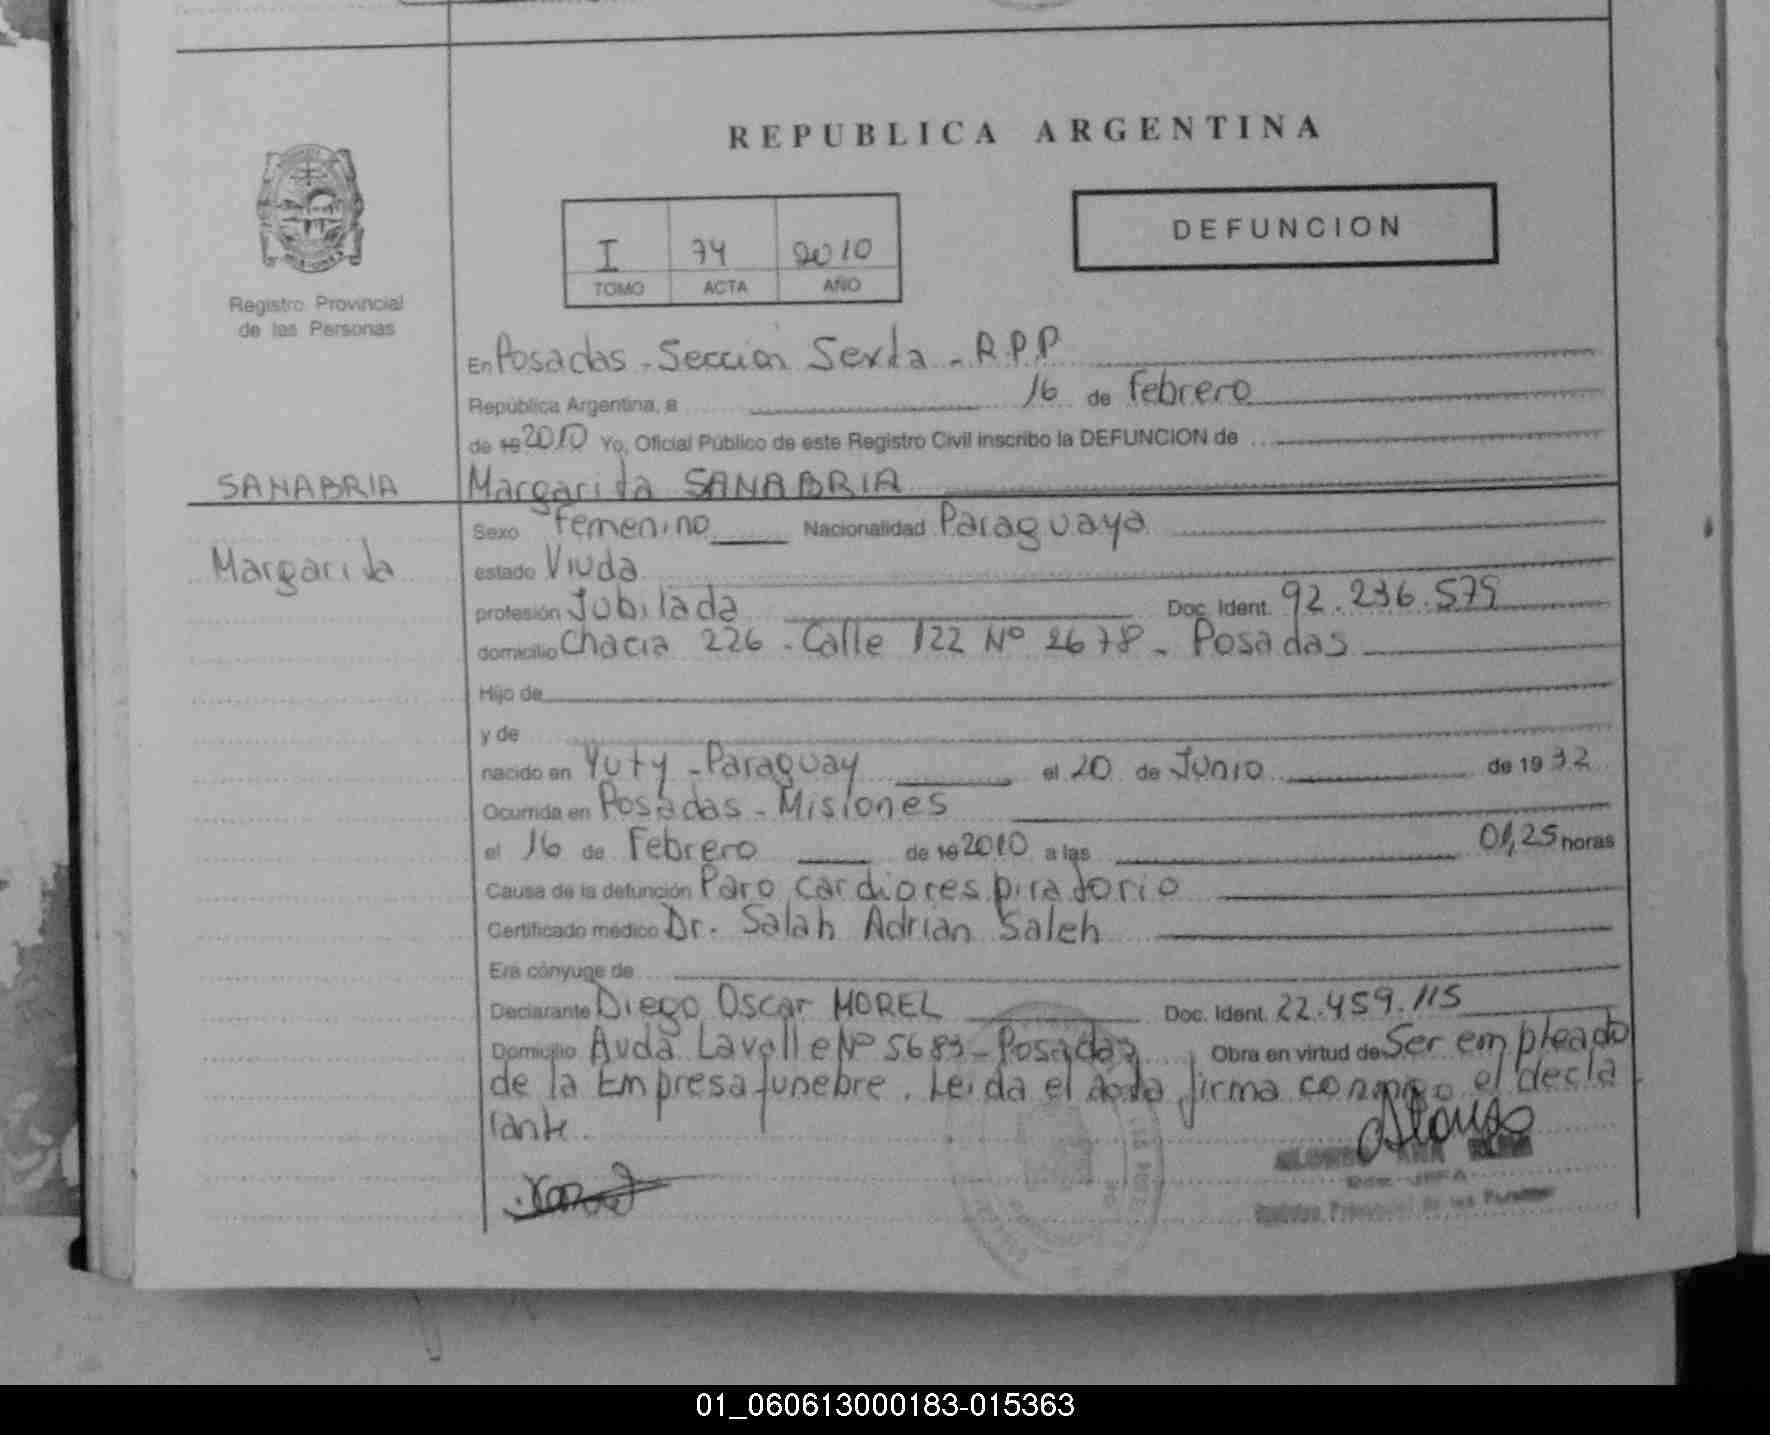 REPUBLICA ARGENTINA
DEFUNCION
I 74 2010
TOMO ACTA AÑO
Registro Provincial
de las Personas
En Posadas - Sección Sexta - R.P.P
República Argentina, a 16 de Febrero
de 19 2010 Yo, Oficial Público de este Registro Civil inscribo la DEFUNCION de
SANABRIA Margarita SANABRIA
Sexo Femenino Nacionalidad Paraguaya
Margarita estado Viuda
profesión Jubilada Doc. Ident. 92.236.575
domicilio Chacra 226 - Calle 122 Nº 2678 - Posadas
Hijo de
y de
nacido en Yuty - Paraguay el 20 de Junio de 1932
Ocurrida en Posadas - Misiones
el 16 de Febrero de 19 2010 a las 01,25 horas
Causa de la defunción Paro cardiorespiratorio
Certificado médico Dr. Salah Adrian Saleh
Era cónyuge de
Declarante Diego Oscar MOREL Doc. Ident. 22.459.115
Domicilio Avda Lavalle Nº 5683 - Posadas Obra en virtud de Ser empleado
de la Empresa funebre. Leida el Acta firma conmigo el decla
rante.
Registro Provincial de las Personas
01_060613000183-015363